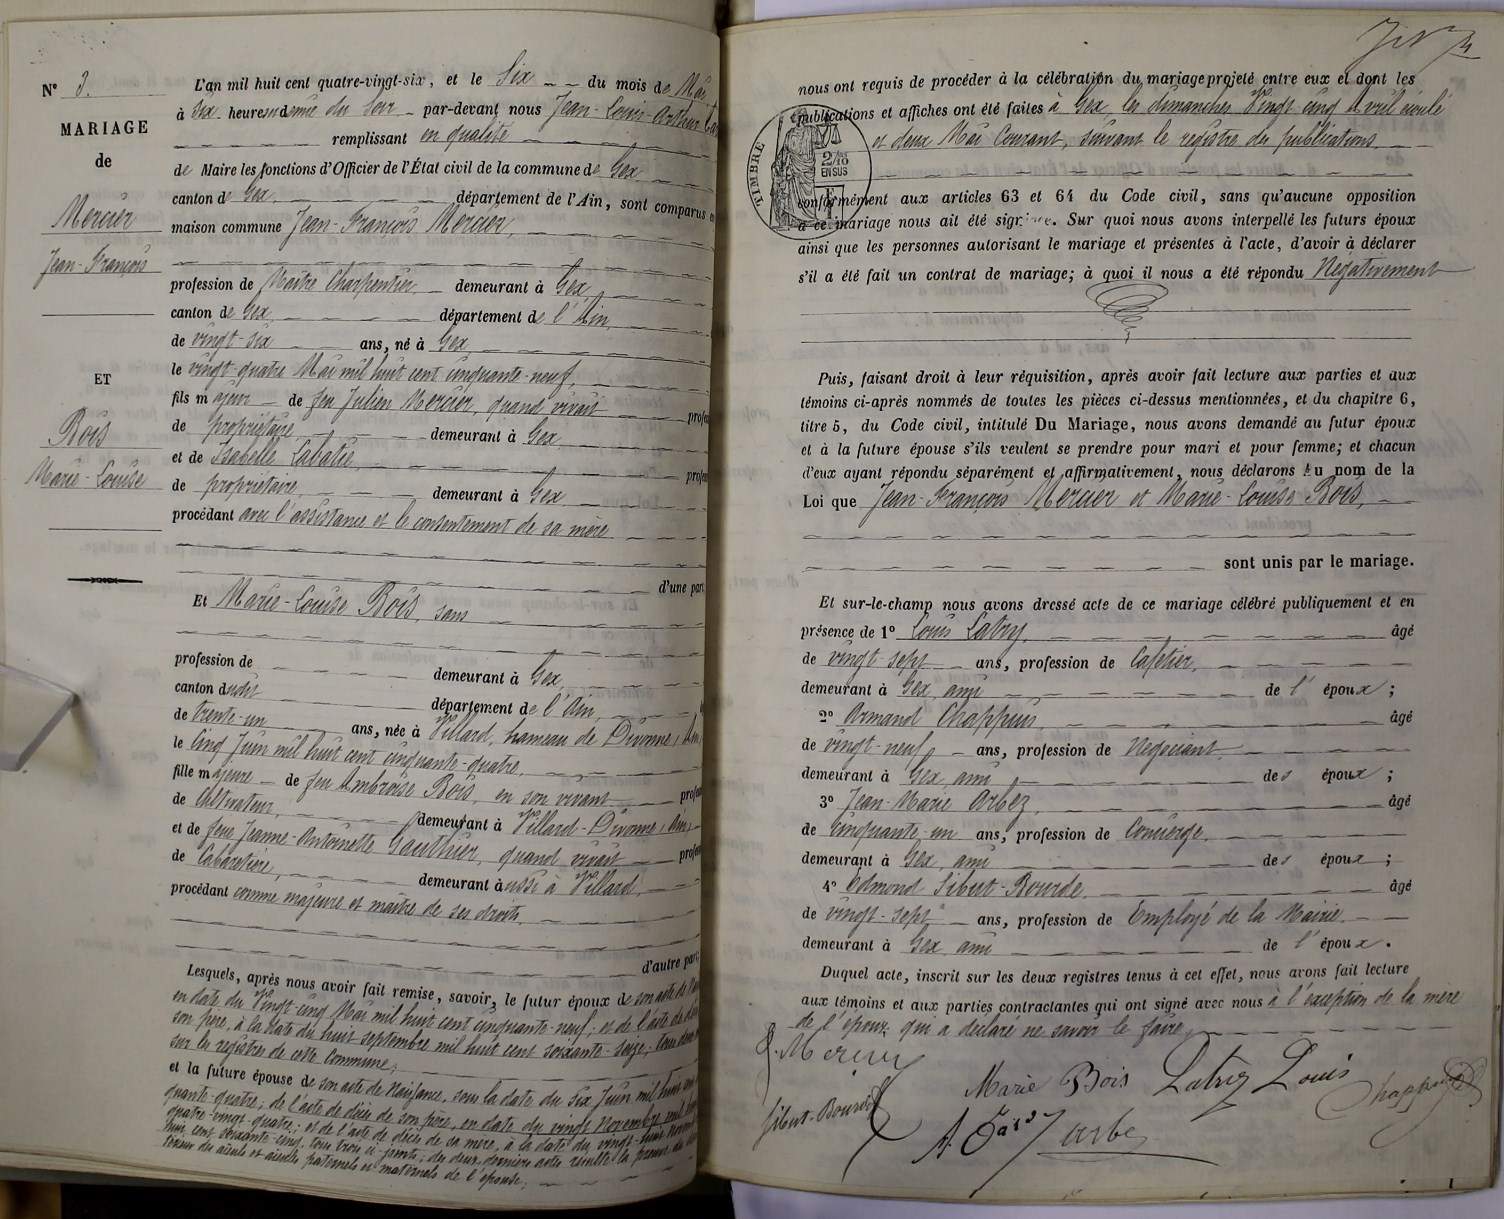 N° 3.
MARIAGE
de
Mercier
Jean-François
ET
Bois
Marie-Louise
L'an mil huit cent quatre-vingt-six, et le Six du mois de Mai
à Six heures et demie du soir par-devant nous Jean-Louis-Arthur
remplissant en qualité
de Maire les fonctions d'Officier de l'État civil de la commune de Gex
canton de Gex département de l'Ain, sont comparus en
maison commune Jean-François Mercier,
profession de Maître Charpentier demeurant à Gex,
canton de Gex département de l'Ain,
de vingt-six ans, né à Gex
le vingt-quatre Mai mil huit cent cinquante-neuf,
fils majeur de feu Julien Mercier, quand vivait profes
de propriétaire demeurant à Gex
et de Isabelle Labatie, profes
de propriétaire, demeurant à Gex
procédant avec l'assistance et le consentement de sa mère
d'une part
Et Marie-Louise Bois, sans
profession de demeurant à Gex,
canton dudit département de l'Ain,
de trente-un ans, née à Villard, hameau de Divonne (Ain)
le Cinq Juin mil huit cent cinquante-quatre,
fille majeure de feu Ambroise Bois, en son vivant profes
de Cultivateur, demeurant à Villard-Divonne (Ain)
et de feue Jeanne-Antoinette Gauthier, quand vivait profes
de Cabaretière, demeurant aussi à Villard,
procédant comme majeure et maître de ses droits
d'autre part;
Lesquels, après nous avoir fait remise, savoir, le futur époux de son acte de
en date du Vingt-cinq Mai mil huit cent cinquante-neuf; et de l'acte de
son père, à la date du huit septembre mil huit cent soixante-seize,
sur les registres de cette Commune;
et la future épouse de son acte de Naissance, sous la date du six Juin mil huit
quante-quatre; de l'acte de décès de son père, en date du vingt Novembre mil
quatre-vingt-quatre; et de l'acte de décès de sa mère, à la date du vingt-huit
huit cent soixante-cinq, tous trois ci-joints; des deux derniers actes résulte la preuve du
des aïeuls et aïeules paternels et maternels de l'épouse;
nous ont requis de procéder à la célébration du mariage projeté entre eux et dont les
publications et affiches ont été faites à Gex, les dimanches Vingt cinq Avril écoulé
et deux Mai Courant, suivant le registre des publications
TIMBRE
2/10
EN SUS
conformément aux articles 63 et 64 du Code civil, sans qu'aucune opposition
à ce mariage nous ait été signifiée. Sur quoi nous avons interpellé les futurs époux
ainsi que les personnes autorisant le mariage et présentes à l'acte, d'avoir à déclarer
s'il a été fait un contrat de mariage; à quoi il nous a été répondu Négativement
Puis, faisant droit à leur réquisition, après avoir fait lecture aux parties et aux
témoins ci-après nommés de toutes les pièces ci-dessus mentionnées, et du chapitre 6,
titre 5, du Code civil, intitulé Du Mariage, nous avons demandé au futur époux
et à la future épouse s'ils veulent se prendre pour mari et pour femme; et chacun
d'eux ayant répondu séparément et affirmativement, nous déclarons Au nom de la
Loi que Jean-François Mercier et Marie-Louise Bois,
sont unis par le mariage.
Et sur-le-champ nous avons dressé acte de ce mariage célébré publiquement et en
présence de 1° Louis Latry, âgé
de vingt-sept ans, profession de Cafetier,
demeurant à Gex, ami de l'époux;
2° Armand Chappuis, âgé
de vingt-neuf ans, profession de Négociant
demeurant à Gex, ami des époux;
3° Jean-Marie Arbez, âgé
de cinquante-un ans, profession de Concierge
demeurant à Gex, ami des époux;
4° Edmond Sibut-Bourde, âgé
de vingt-sept ans, profession de Employé de la Mairie
demeurant à Gex, ami de l'époux.
Duquel acte, inscrit sur les deux registres tenus à cet effet, nous avons fait lecture
aux témoins et aux parties contractantes qui ont signé avec nous à l'exception de la mère
de l'époux qui a déclaré ne savoir le faire,
Mercier
Marie Bois Latry Louis Chappuis
Sibut-Bourde
Arbez